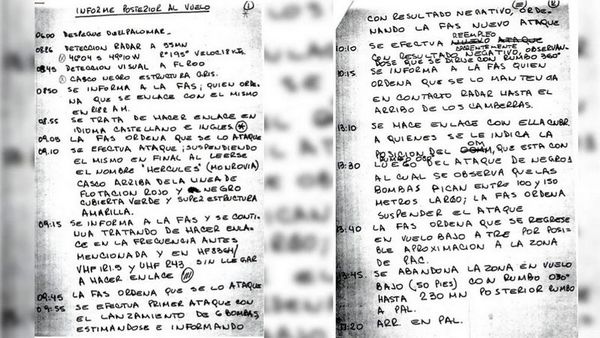 INFORME POSTERIOR AL VUELO
①
04.00 DESPEGUE DE PALOMAR.
DETECCION RADAR A 55MN
46°04'S 49°10'W R=195° VELOC:18KTS.
08:45 DETECCION VISUAL A FL200
CASCO NEGRO ESTRUCTURA GRIS.
0850 SE INFORMA A LA FAS; QUIEN ORDE-
NA QUE SE ENLACE CON EL MISMO
08.55 SE TRATA DE HACER ENLACE EN
IDIOMA CASTELLANO E INGLES.
09.05 LA FAS ORDENA QUE SE LO ATAQUE
09.10 SE EFECTUA ATAQUE; SUSPENDIENDO
EL MISMO EN FINAL AL LEERSE
EL NOMBRE "HERCULES" (MONROVIA)
CASCO ARRIBA DE LA LINEA DE
FLOTACION ROJO Y NEGRO
CUBIERTA VERDE Y SUPERESTRUCTURA
AMARILLA.
09:15 SE INFORMA A LA FAS Y SE CONTI-
NUA TRATANDO DE HACER ENLA-
CE EN LA FRECUENCIA ANTES
MENCIONADA Y EN HF
VHF Y UHF R43 SIN LLEGAR
A HACER ENLACE
09:45 LA FAS ORDENA QUE SE LO ATAQUE
09:55 SE EFECTUA PRIMER ATAQUE CON
EL LANZAMIENTO DE 6 BOMBAS,
ESTIMANDOSE E INFORMANDO
CON RESULTADO NEGATIVO, ORDE-
NANDO LA FAS NUEVO ATAQUE
REEMPLEO
10:10 SE EFECTUA NUEVO ATAQUE
APARENTEMENTE
CON RESULTADO NEGATIVO, OBSERVAN-
DOSE QUE SE DIRIGE CON RUMBO 360°
10:15 SE INFORMA A LA FAS QUIEN
ORDENA QUE SE LO MANTENGA
EN CONTACTO RADAR HASTA EL
ARRIBO DE LOS CAMBERRAS.
13:10 SE HACE ENLACE CON ELLA
A QUIENES SE LE INDICA LA
POSICION DEL QUE ESTA CON
RUMBO
13:30 LUEGO DEL ATAQUE DE NEGROS
AL CUAL SE OBSERVA QUE LAS
BOMBAS PICAN ENTRE 100 Y 150
METROS LARGO; LA FAS ORDENA
SUSPENDER EL ATAQUE
13:40 LA FAS ORDENA QUE SE REGRESE
EN VUELO BAJO A TRE POR POSI-
BLE APROXIMACION A LA ZONA
DE PAC.
13:45 SE ABANDONA LA ZONA EN VUELO
BAJO (50 PIES) CON RUMBO 030°
HASTA 230 MN POSTERIOR RUMBO
A PAL.
ARR EN PAL.